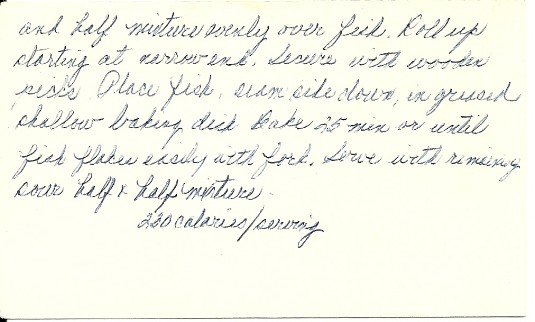 and half mixture evenly over fish. Roll up
starting at narrow end. Secure with wooden
picks Place fish, seam side down, in greased
shallow baking dish Bake 25 min or until
fish flakes easily with fork. Serve with remaining
sour half & half mixture
220 calories/serving